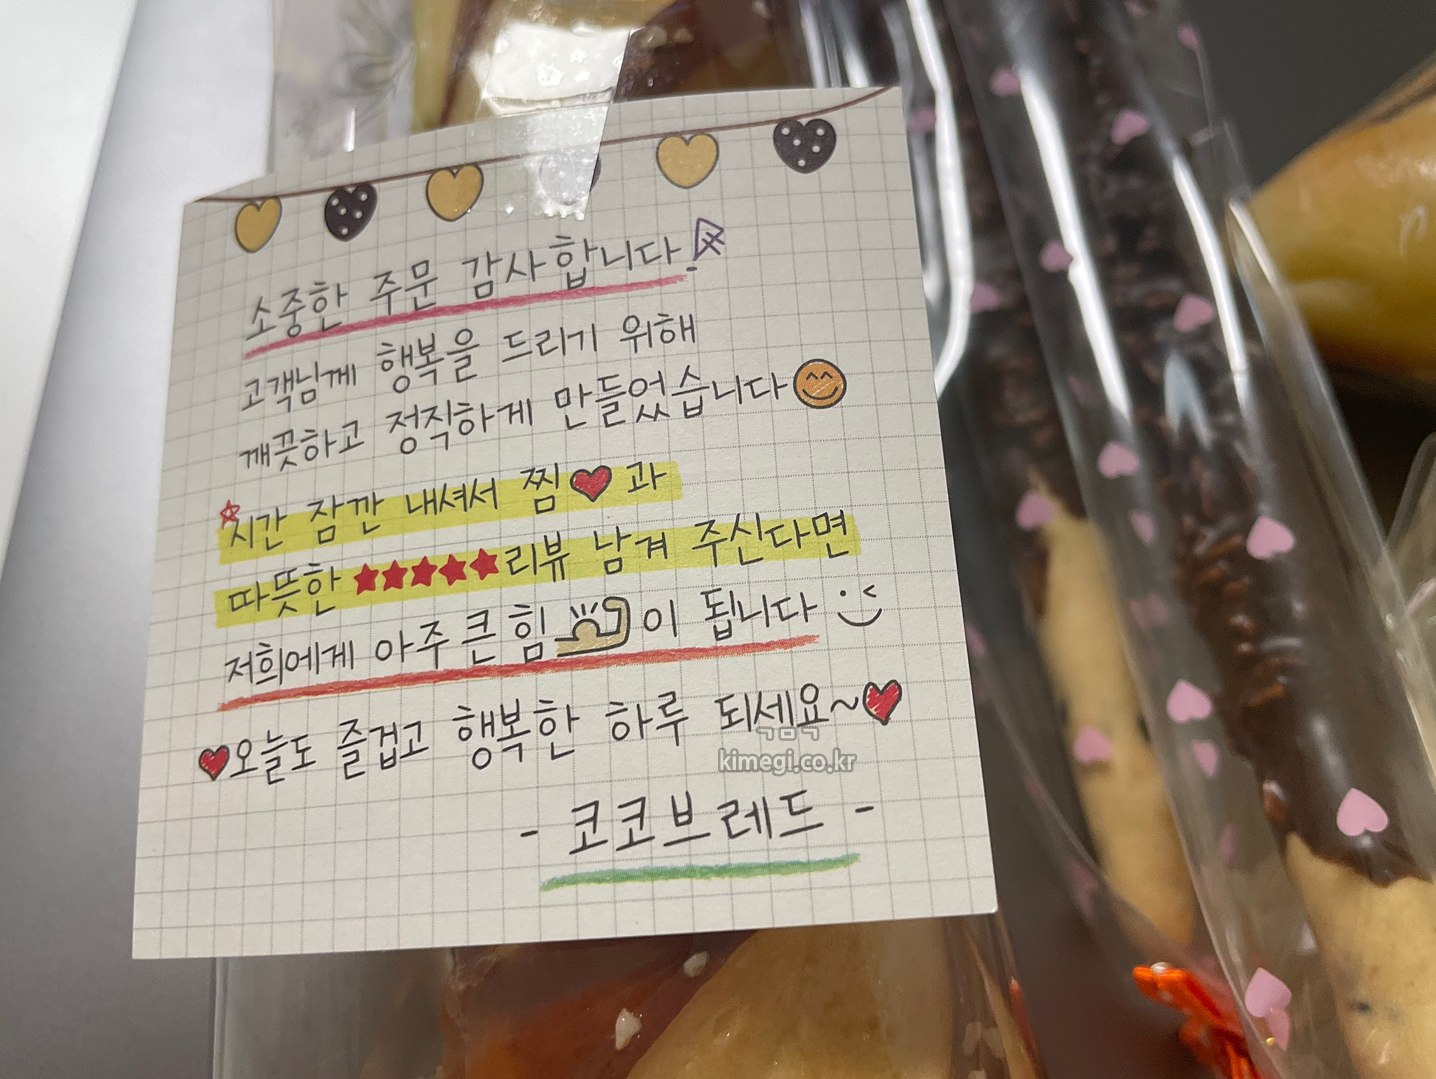 소중한 주문 감사합니다
고객님께 행복을 드리기 위해
깨끗하고 정직하게 만들었습니다
시간 잠깐 내셔서 찜♥과
따뜻한 ★★★★★리뷰 남겨 주신다면
저희에게 아주 큰 힘이 됩니다
♥오늘도 즐겁고 행복한 하루 되세요~♥
kimegi.co.kr
- 코코브레드 -